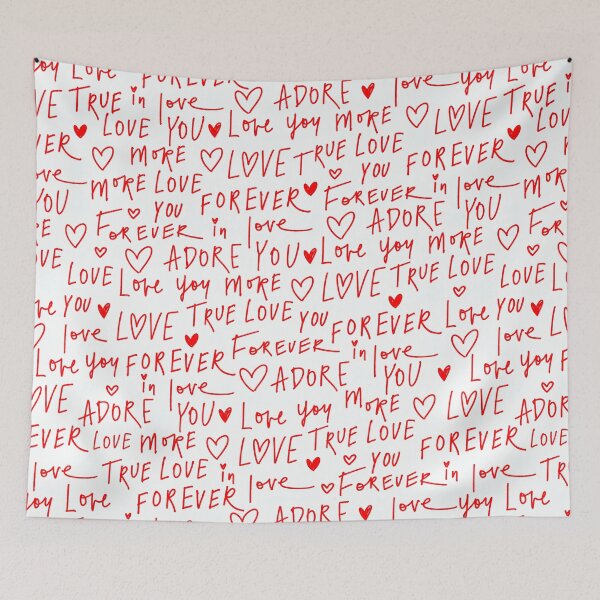 you Love FOREVER love you Love
VE TRUE in love ♡ ADORE ♥ love LOVE TRUE in
VER ♥ LOVE YOU ♥ Love you MORE ♡ LOVE LOV
ove MORE ♡ LOVE TRUE LOVE YOU FOREVER ♥
YOU MORE LOVE FOREVER ♥ FOREVER in love MORE
RE FOREVER ♡ YOU in love ♡ ADORE YOU FOREVER
VE LOVE ♡ ADORE YOU ♥ Love you MORE ♡ ♡
LOVE Love you MORE ♡ LOVE TRUE LOVE LOVE
ve YOU ♥ LOVE TRUE LOVE YOU FOREVER ♥ Love YOU ♥
♡ love FOREVER FOREVER in love ♡ love LOV
Love you ♡ in love ♡ ADORE YOU ♥ Love you F
OVE ADORE YOU ♥ Love you MORE ♡ LOVE ADOR
EVER LOVE MORE ♡ LOVE TRUE LOVE FOREVER LOVE
love TRUE LOVE in ♥ ♡ YOU FOREVER in love TR
you Love FOREVER ♡ ADORE ♥ love you Love